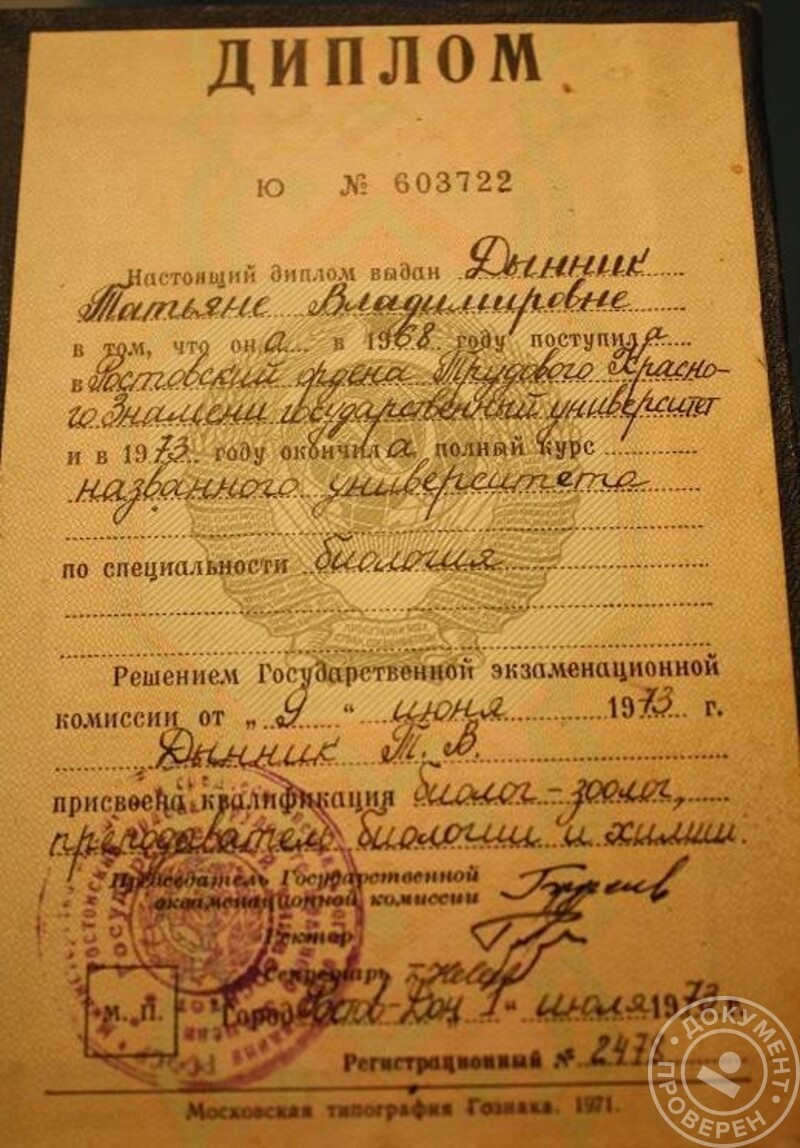 ДИПЛОМ
Ю № 603722
Настоящий диплом выдан Дынник
Татьяне Владимировне
в том, что она в 1968 году поступила
в Ростовский ордена Трудового Красно-
го Знамени государственный университет
и в 1973 году окончила полный курс
названного университета
по специальности биология
Решением Государственной экзаменационной
комиссии от „9“ июня 1973 г.
Дынник Т. В.
присвоена квалификация биолог-зоолог,
преподаватель биологии и химии.
Председатель Государственной
экзаменационной комиссии
Ректор
Секретарь
М. П. Город Ростов-Дон 1“ июля 1973 г.
Регистрационный №
Московская типография Гознака. 1971.
ДОКУМЕНТ
ПРОВЕРЕН